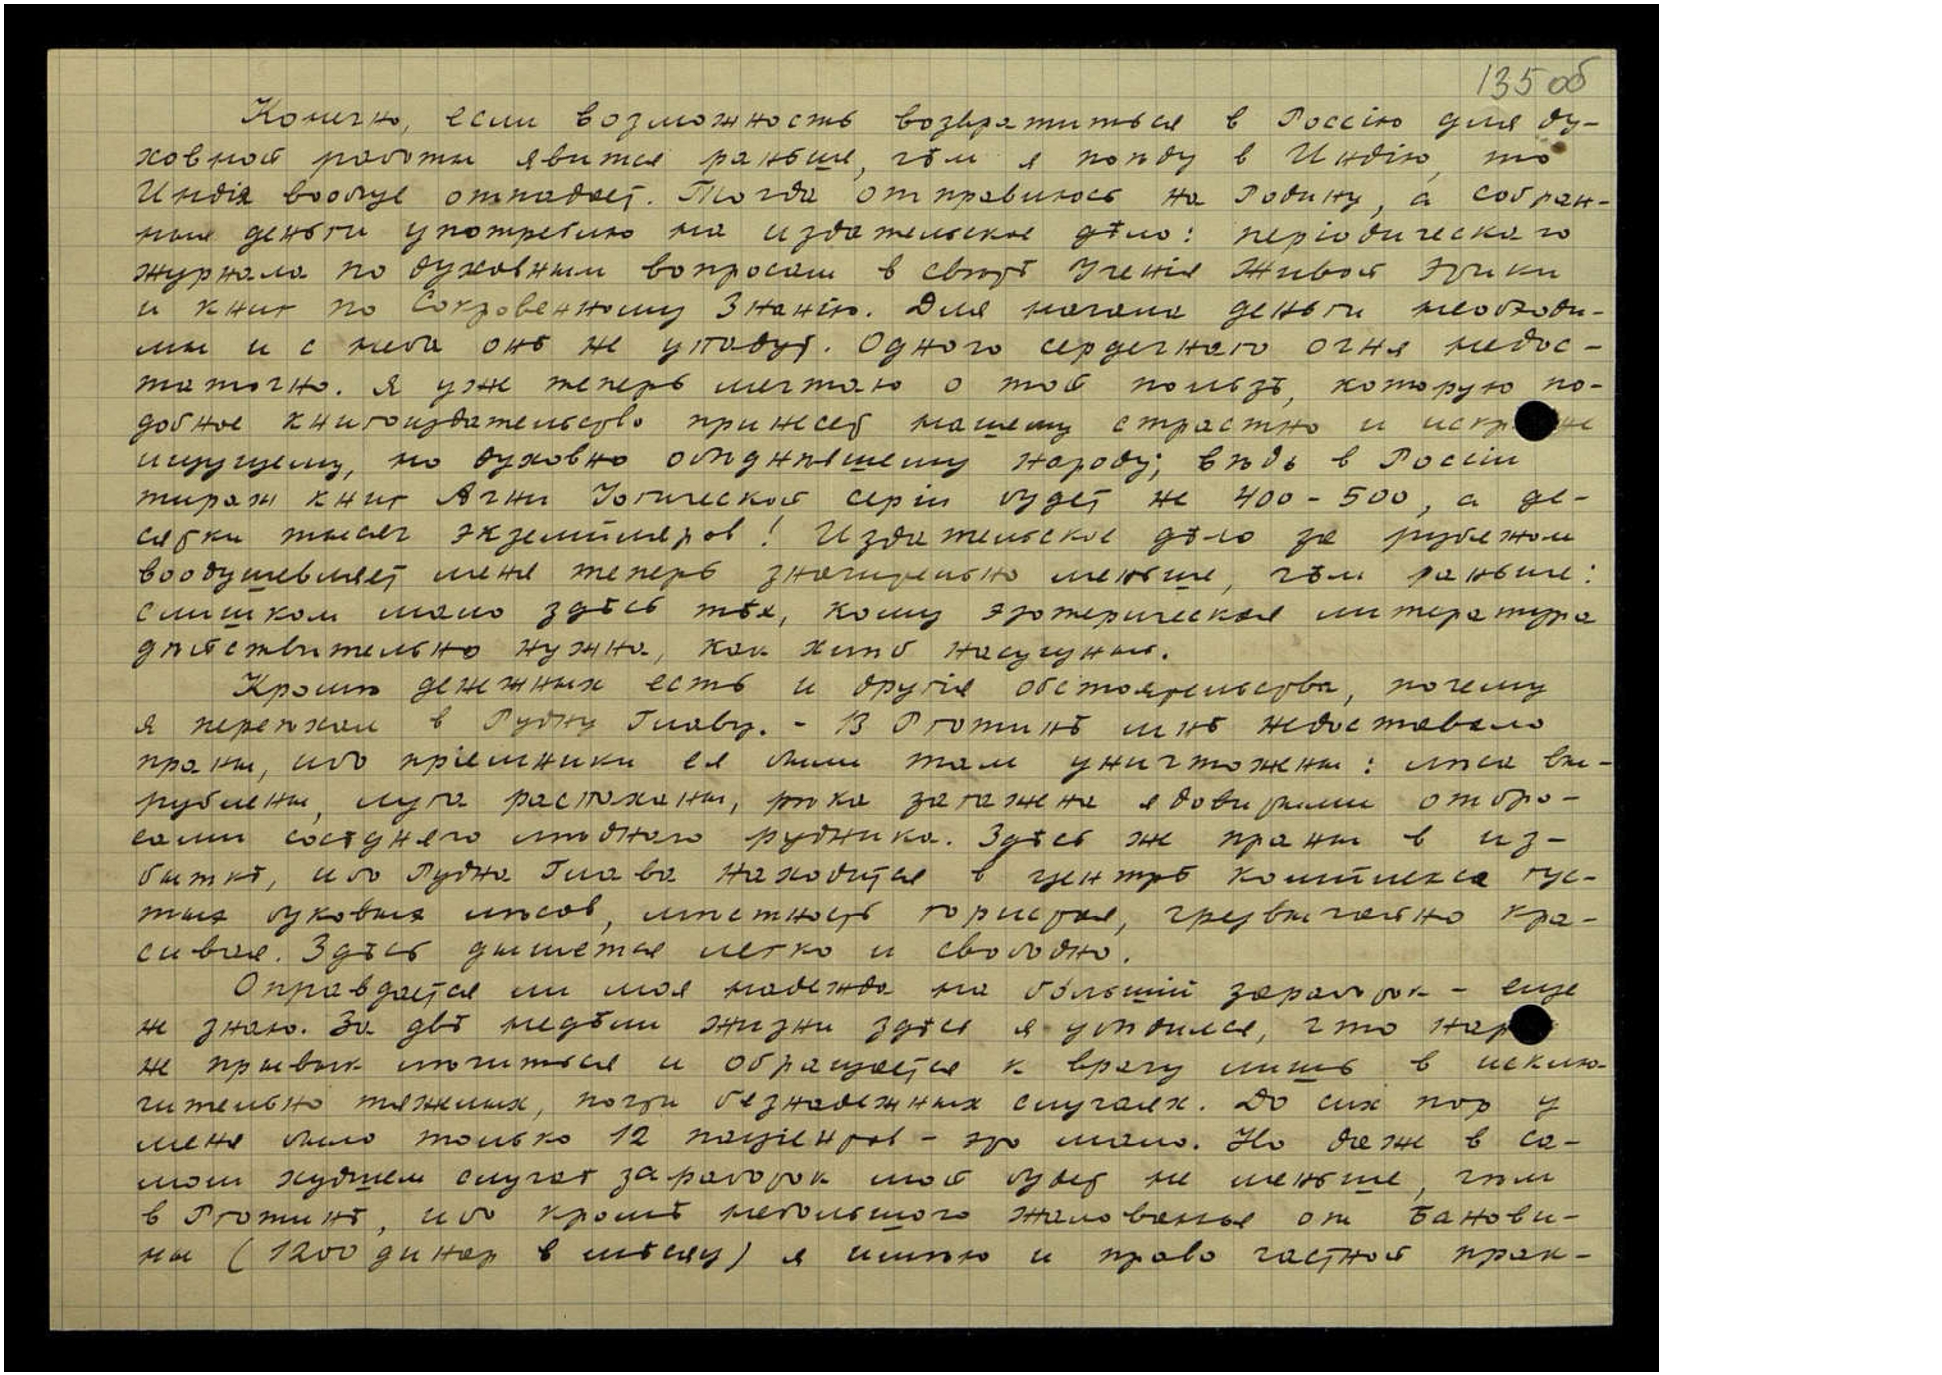 135 об
Конечно, если возможность возвратиться в Россію для ду-
ховной работы явится раньше, чѣм я поѣду в Индію, то
Индія вообще отпадает. Тогда отправлюсь на Родину, а собран-
ныя деньги употреблю на издательское дѣло: періодическаго
журнала по духовным вопросам в свѣтѣ Ученія Живой Этики
и книг по Сокровенному Знанію. Для начала деньги необходи-
мы и с неба онѣ не упадут. Одного сердечнаго огня недос-
таточно. Я уже теперь мечтаю о той пользѣ, которую по-
добное книгоиздательство принесет нашему страстно и
ищущему, но духовно обѣднѣвшему народу; вѣдь в Россіи
тираж книг Агни Іогической серіи будет не 400-500, а де-
сятки тысяч экземпляров! Издательское дѣло за рубежом
воодушевляет меня теперь значительно меньше, чѣм раньше:
слишком мало здѣсь тѣх, кому эзотерическая литература
дѣйствительно нужна, как хлѣб насущный.
Кромѣ денежных есть и другія обстоятельства, почему
я переѣхал в Рудну Главу. - В Рготинѣ мнѣ недоставало
праны, ибо пріемники ея были там уничтожены: лѣса вы-
рублены, луга распаханы, рѣка загажена ядовитыми отбро-
сами сосѣдняго мѣднаго рудника. Здѣсь же праны в из-
быткѣ, ибо Рудна Глава находится в центрѣ комплекса гус-
тых буковых лѣсов, мѣстность гористая, чрезвычайно кра-
сивая. Здѣсь дышется легко и свободно.
Оправдается ли моя надежда на бóльшій заработок - еще
не знаю. За двѣ недѣли жизни здѣсь я убѣдился, что
не привык лѣчиться и обращается к врачу лишь в исклю-
чительно тяжелых, почти безнадежных случаях. До сих пор у
меня было только 12 паціентов - это мало. Но даже в са-
мом худшем случаѣ заработок мой будет не меньше, чѣм
в Рготинѣ, ибо кромѣ небольшого жалованья от Банови-
ны (1200 динар в мѣсяц) я имѣю и право частной прак-